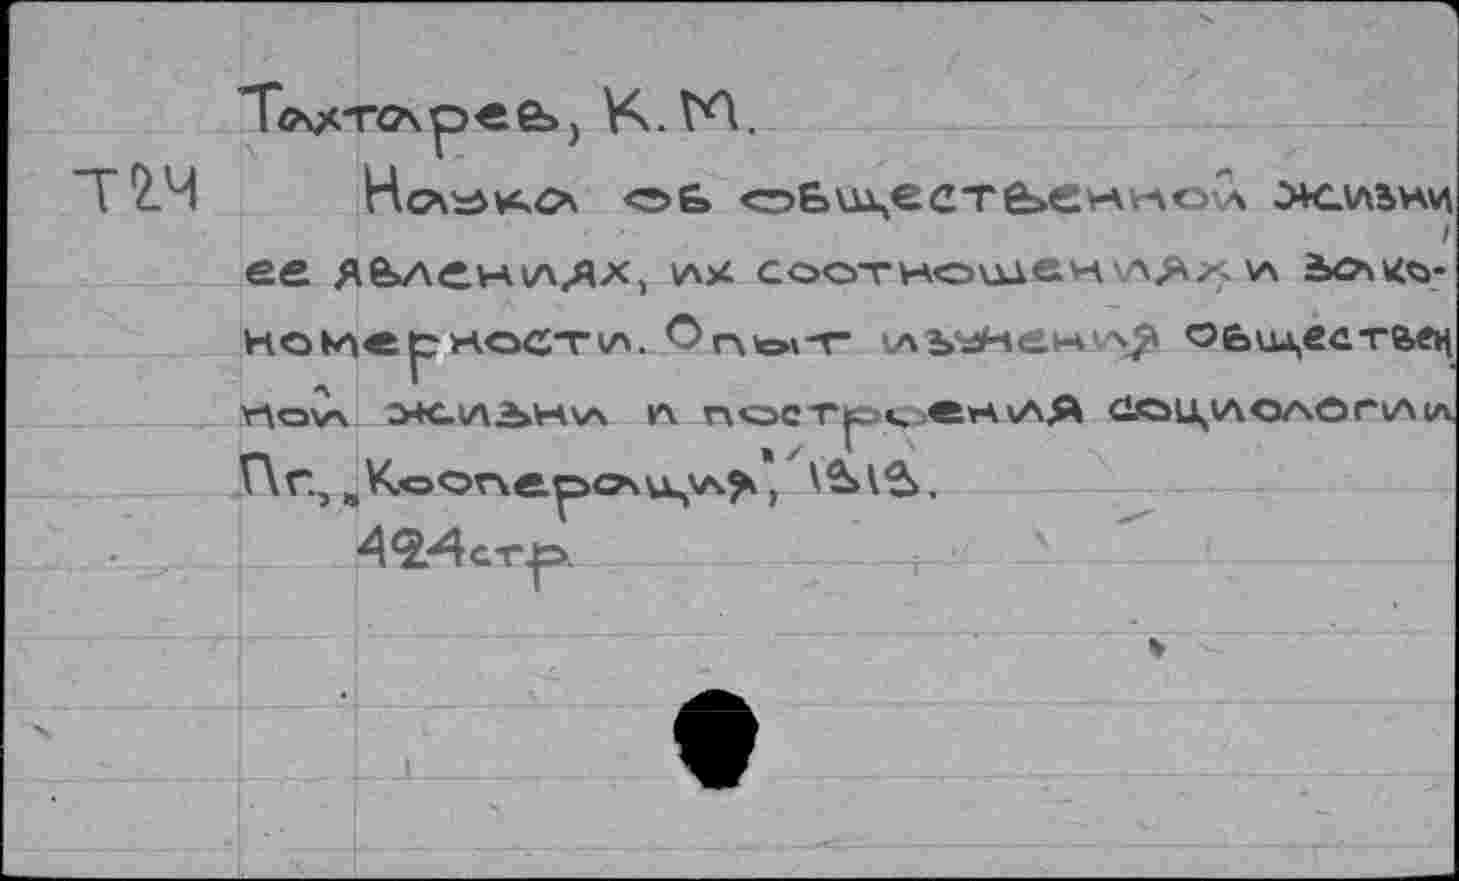 Тахтарев, К. М.
Т24 Наука об общественной жизни,
ее явлениях, их соотношениях и зако-
номерности. Опыт изучения обществен
ной жизни и построения социологии
Пг., „Кооперация", 1919.
424стр.